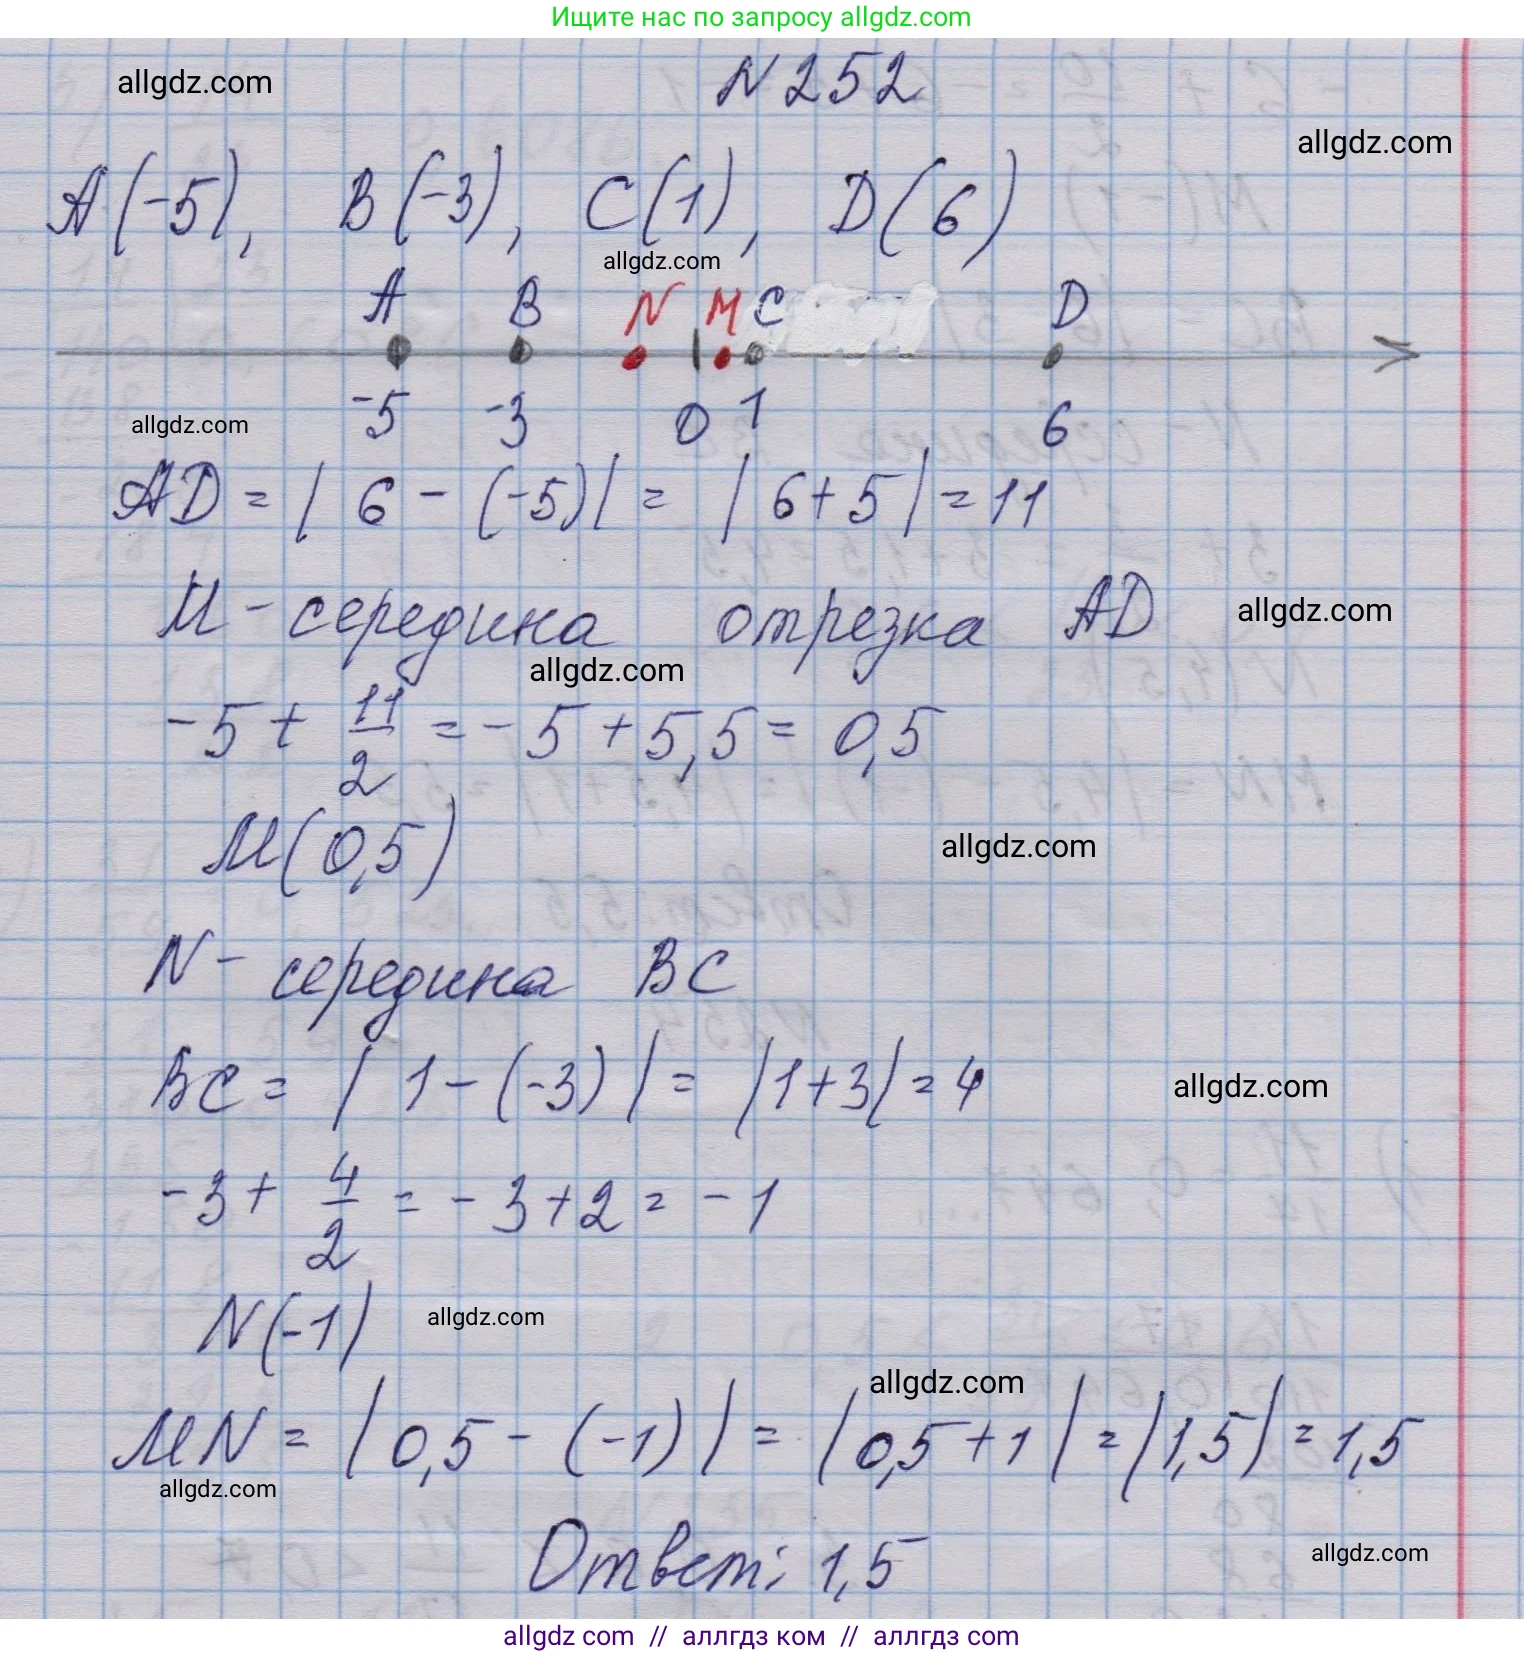 Ищите нас по запросу allgdz.com
N 252
allgdz.com
allgdz.com
A(-5), B(-3), C(1), D(6)
allgdz.com
A B N M C D
-5 -3 0 1 6
allgdz.com
AD = | 6 - (-5)| = | 6 + 5 | = 11
M - середина отрезка AD
allgdz.com
allgdz.com
-5 + 11/2 = -5 + 5,5 = 0,5
M(0,5)
allgdz.com
N - середина BC
BC = | 1 - (-3) | = |1+3| = 4
allgdz.com
-3 + 4/2 = -3 + 2 = -1
N(-1)
allgdz.com
allgdz.com
MN = | 0,5 - (-1) | = | 0,5 + 1 | = |1,5| = 1,5
allgdz.com
Ответ: 1,5
allgdz.com
allgdz com // аллгдз ком // аллгдз com